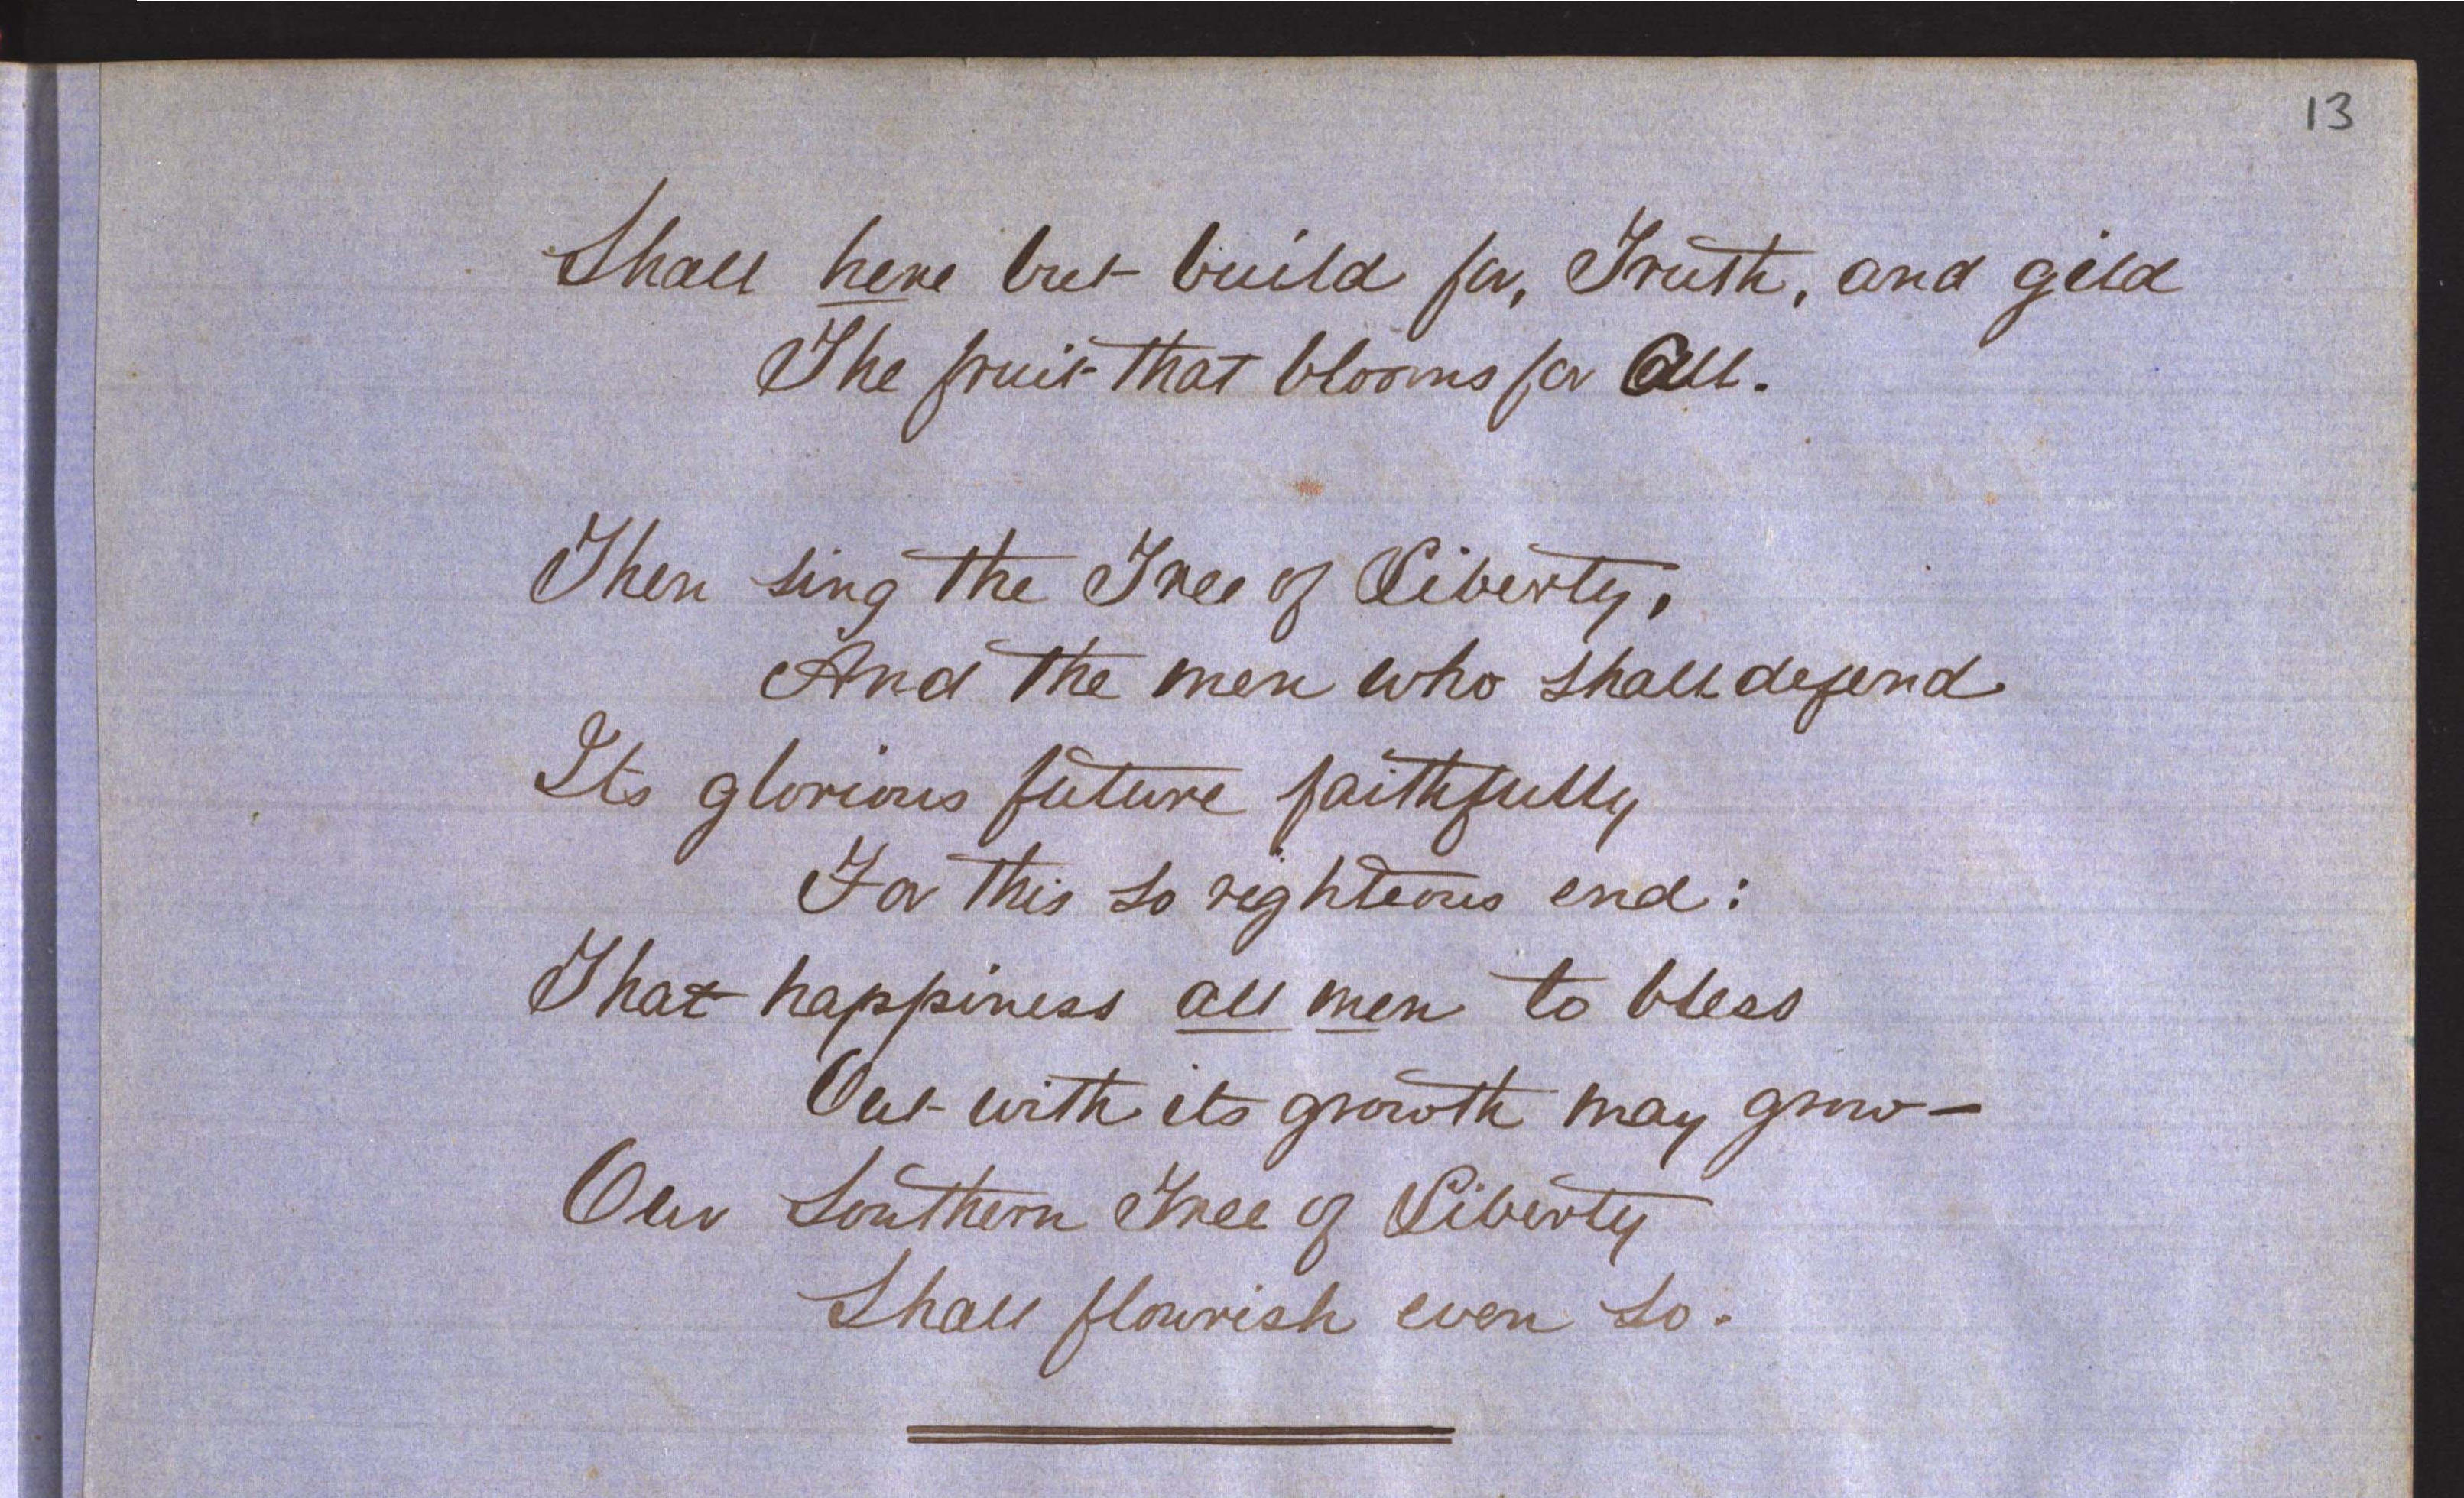 13
Shall here but build for, Truth, and gild
The fruit that blooms for All.
Then sing the Tree of Liberty,
And the men who shall defend
Its glorious future faithfully
For this so righteous end:
That happiness all men to bless
Out with its growth may grow—
Our Southern Tree of Liberty
Shall flourish even so.